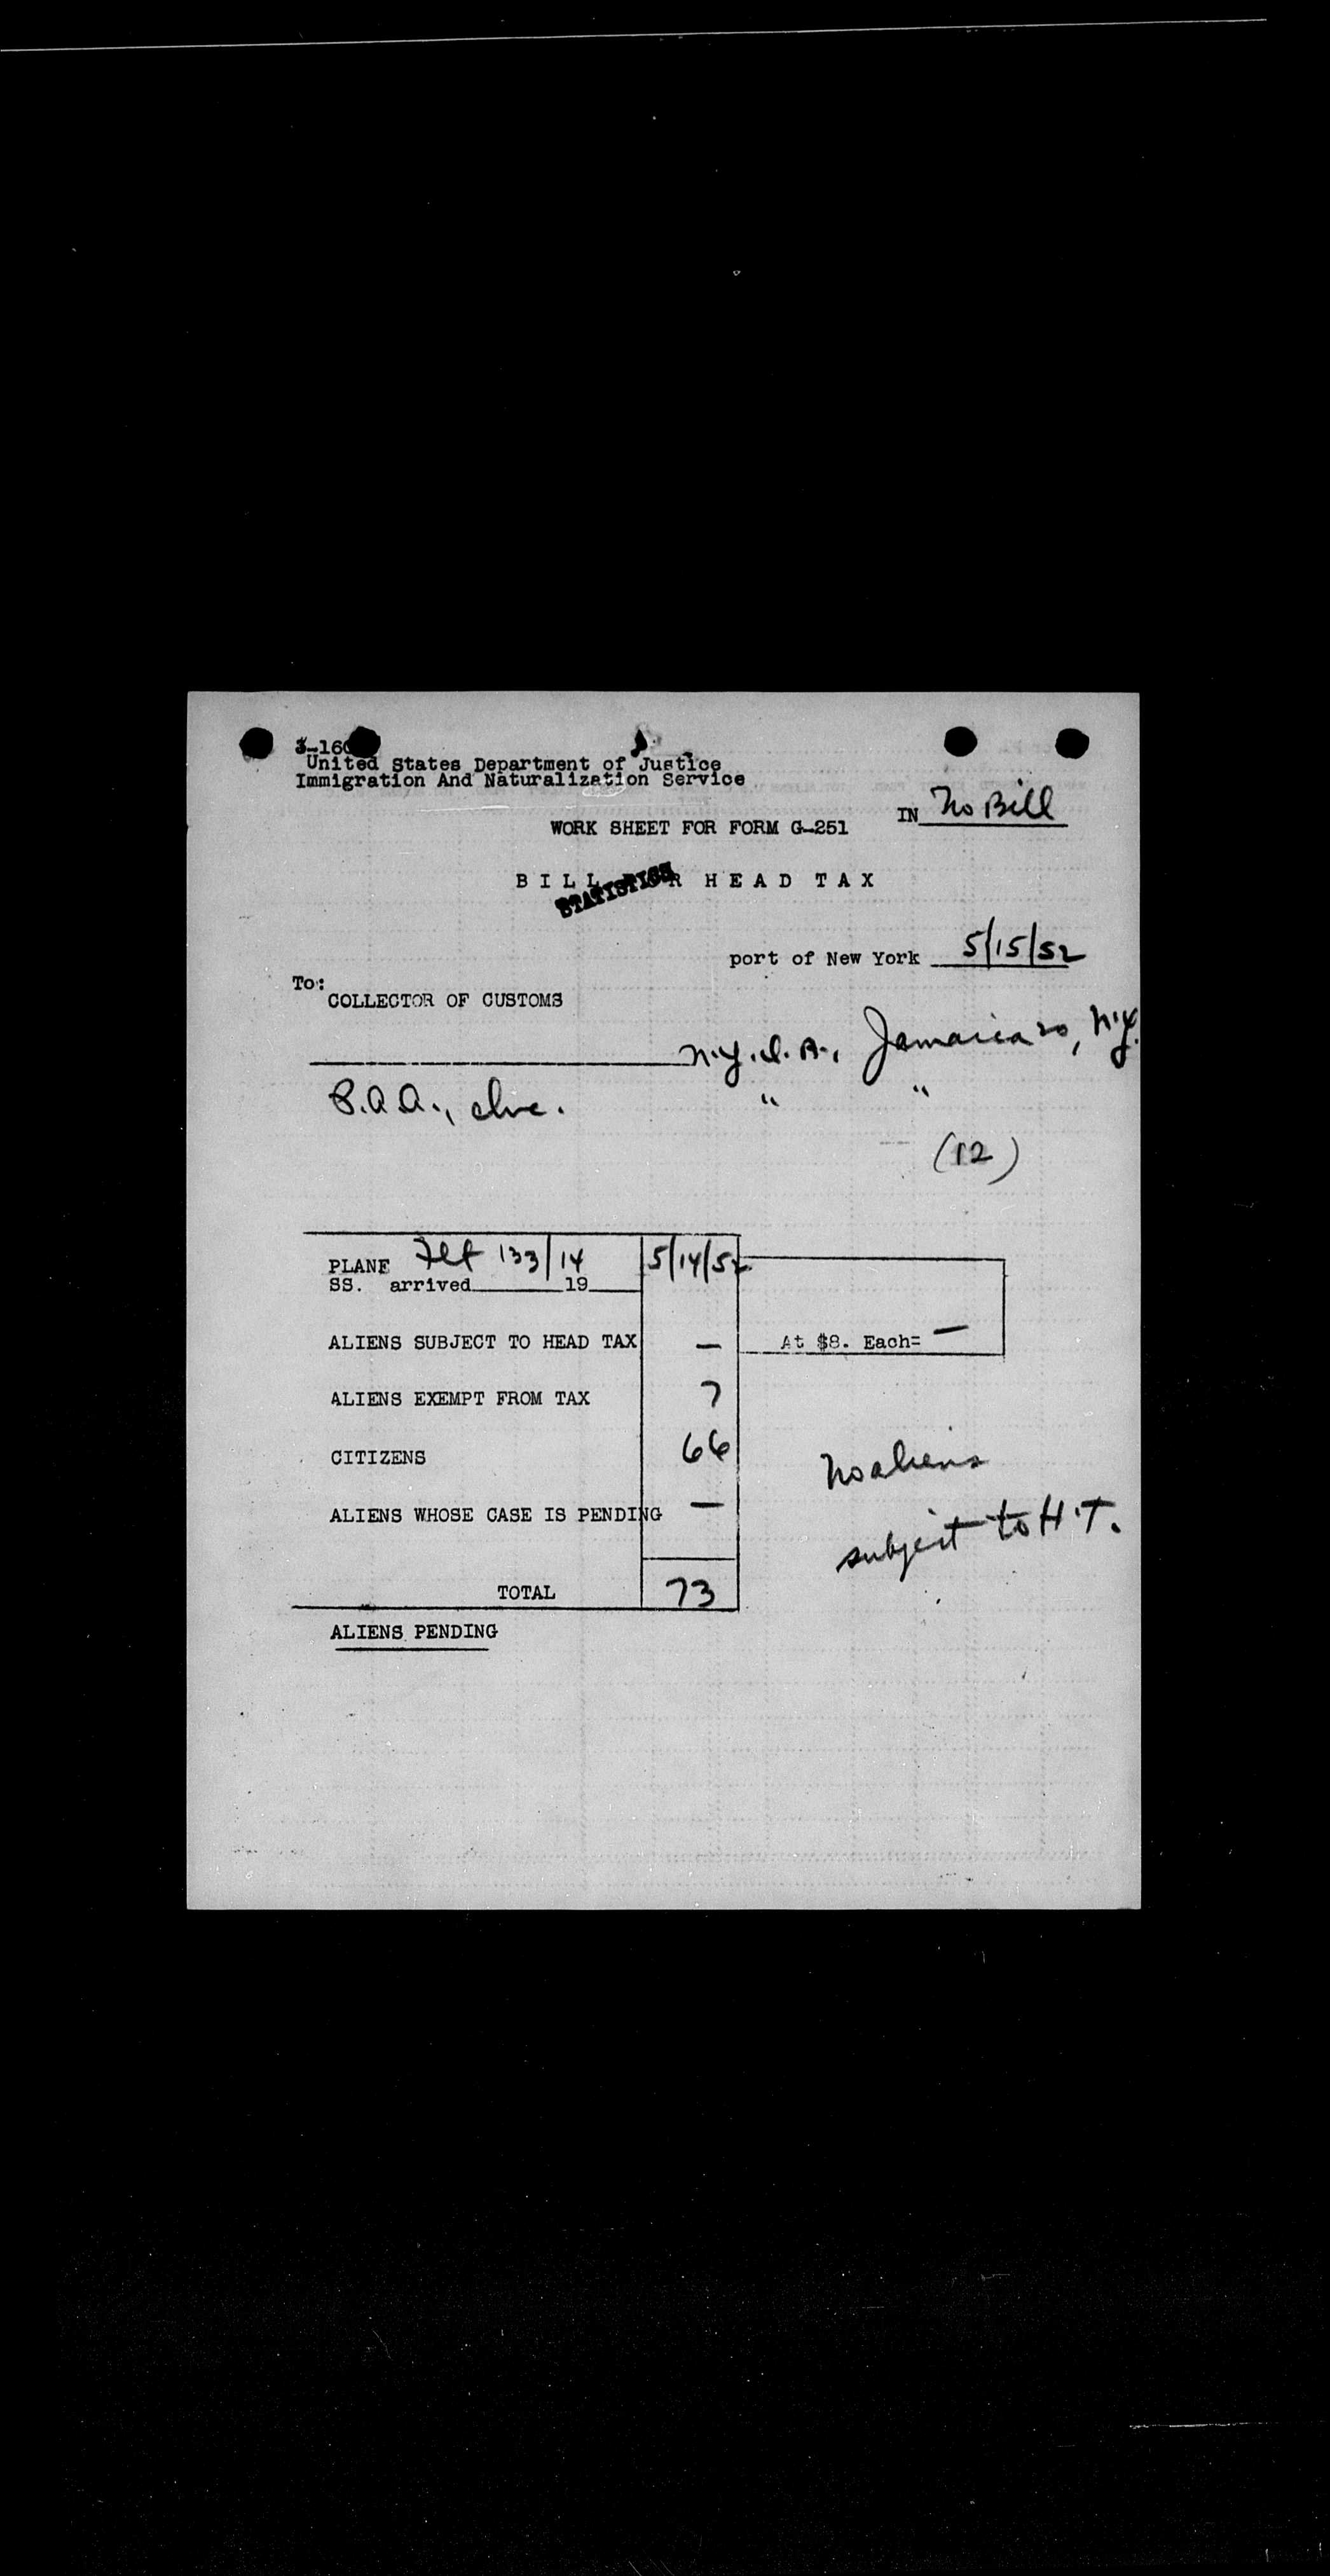 3-160
United States Department of Justice
Immigration And Naturalization Service
IN No Bill
WORK SHEET FOR FORM G-251
BILL FOR HEAD TAX
STATISTICS
port of New York 5/15/52
To:
COLLECTOR OF CUSTOMS
N.Y.I.A., Jamaica 20, N.Y.
P.A.A., Inc. " "
(12)
PLANE Flt 133/14 5/14/52
SS. arrived 19
ALIENS SUBJECT TO HEAD TAX — At $8. Each= —
ALIENS EXEMPT FROM TAX 7
CITIZENS 66
No aliens
ALIENS WHOSE CASE IS PENDING —
subject to H.T.
TOTAL 73
ALIENS PENDING